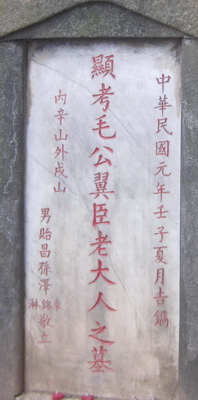 中華民國元年壬子夏月吉鐫
顯考毛公翼臣老大人之墓
內辛山外戌山
男貽昌孫澤東銘淋敬立